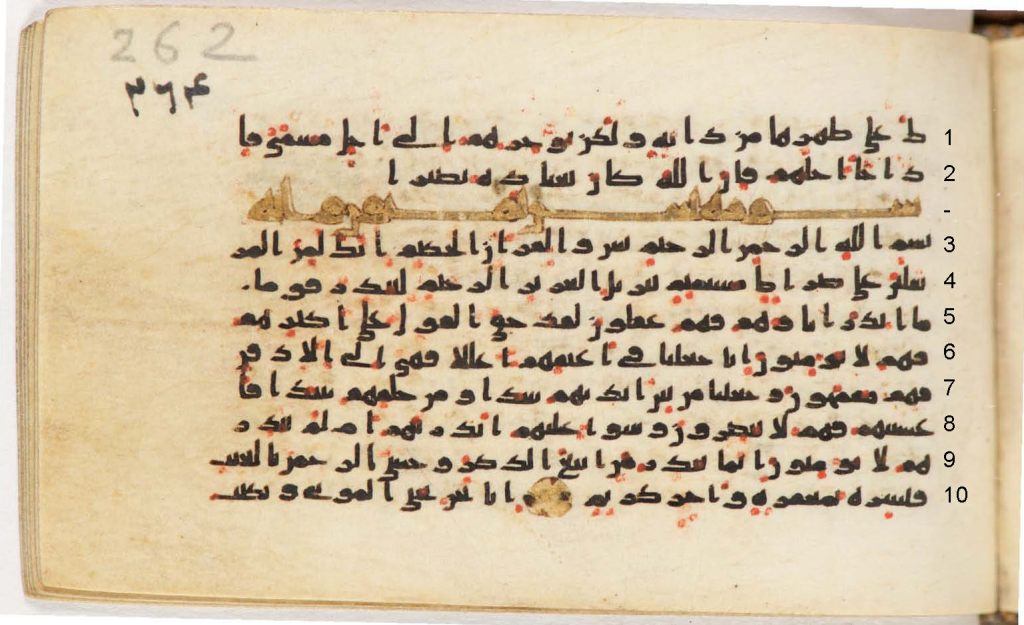 262
٣٦٤
ك على ظهرها من دابه ولكن يوخرهم الى اجل مسمى فا 1
ذا جا اجلهم فان الله كان بعباده بصيرا 2
يس -
بسم الله الرحمن الرحيم يس والقران الحكيم انك لمن المر 3
سلين على صراط مستقيم تنزيل العزيز الرحيم لتنذر قوما 4
ما انذر اباوهم فهم غفلون لقد حق القول على اكثرهم 5
فهم لا يومنون انا جعلنا في اعنقهم اغللا فهي الى الاذقن 6
فهم مقمحون وجعلنا من بين ايديهم سدا ومن خلفهم سدا فا 7
غشينهم فهم لا يبصرون وسوا عليهم انذرتهم ام لم تنذر 8
هم لا يومنون انما تنذر من اتبع الذكر وخشي الرحمن بالغيب 9
فبشره بمغفره واجر كريم انا نحن نحي الموتى ونكتب 10